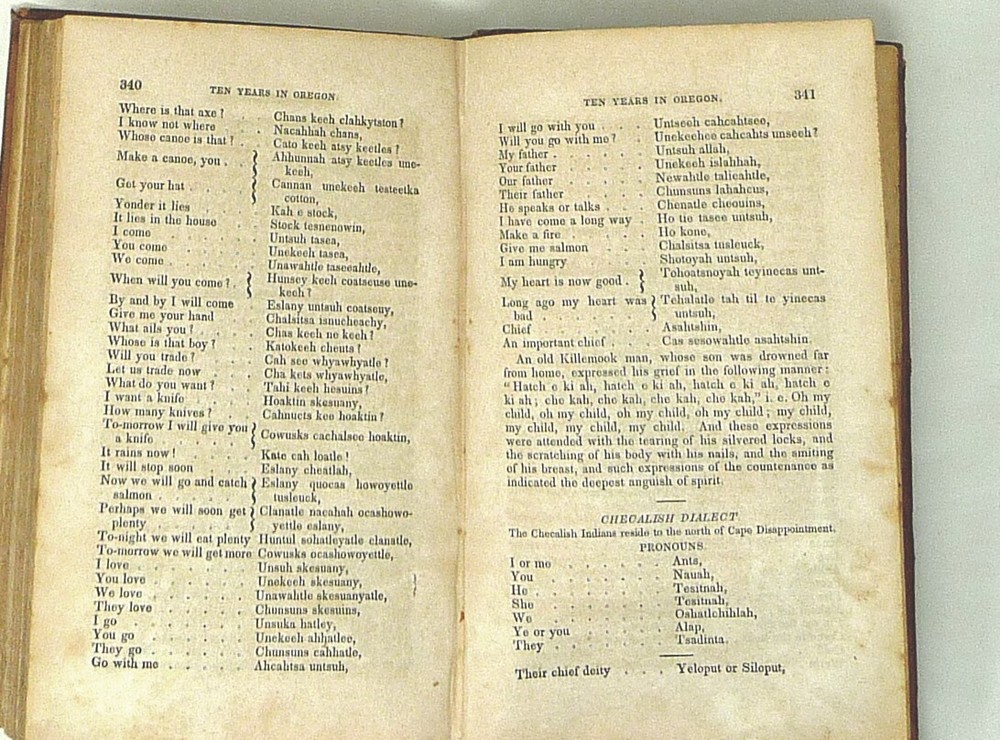 340
TEN YEARS IN OREGON.
Where is that axe? . Chans keeh clahkytston?
I know not where . . Nacahhah chans,
Whose canoe is that? . Cato keeh atsy keetles?
Make a canoe, you . } Ahhunnah atsy keetles une-
keeh,
Get your hat . . . } Cannan unekeeh testeetka
cotton,
Yonder it lies . . . Kah e stock,
It lies in the house . . Stock tesnenowin,
I come . . . . . Untsuh tasea,
You come . . . . Unekeeh tasea,
We come . . . . Unawahtle taseeahtle,
When will you come? . } Hunsey keeh coatseuse une-
keeh?
By and by I will come Eslany untsuh coatseny,
Give me your hand . Chalsitsa isnucheachy,
What ails you? . . . Chas keeh ne keeh?
Whose is that boy? . . Katokeeh chents?
Will you trade? . . . Cah see whyawhyatle?
Let us trade now . . Cha kets whyawhyatle,
What do you want? . . Tahi keeh hesuins?
I want a knife . . . Hoaktin skesuany,
How many knives? . . Cahnucts kee hoaktin?
To-morrow I will give you
a knife . . . . } Cowusks cachalsee hoaktin,
It rains now! . . . Kate cah loatle!
It will stop soon . . Eslany cheatlah,
Now we will go and catch } Eslany quocas howoyettle
salmon . . . . . tusleuck,
Perhaps we will soon get } Clanatle nacahah ocashowo-
plenty . . . . . yettle eslany,
To-night we will eat plenty Huntul sohatleyatle clanatle,
To-morrow we will get more Cowusks ocashowoyettle,
I love . . . . . . Unsuh skesuany,
You love . . . . . Unekeeh skesuany,
We love . . . . . Unawahtle skesuanyatle,
They love . . . . . Chunsuns skesuins,
I go . . . . . . Unsuka hatley,
You go . . . . . Unekeeh ahhatlee,
They go . . . . . Chunsuns cahhatle,
Go with me . . . . Ahcahtsa untsuh,
TEN YEARS IN OREGON. 341
I will go with you . . . Untseeh cahcahtsee,
Will you go with me? . . Unekeehee cahcahts unseeh?
My father . . . . . . Untsuh allah,
Your father . . . . . Unekeeh islahhah,
Our father . . . . . Newahtle talieahtle,
Their father . . . . . Chunsuns lahahcus,
He speaks or talks . . . Chenatle cheouins,
I have come a long way . Ho tie tasee untsuh,
Make a fire . . . . . Ho kone,
Give me salmon . . . . Chalsitsa tusleuck,
I am hungry . . . . . Shotoyah untsuh,
My heart is now good . } Tohoatsnoyah teyinecas unt-
suh,
Long ago my heart was } Tchalatle tah til te yinecas
bad . . . . . . untsuh,
Chief . . . . . . Asahtshin,
An important chief . . . Cas sesowahtle asahtshin.
An old Killemook man, whose son was drowned far
from home, expressed his grief in the following manner:
"Hatch e ki ah, hatch e ki ah, hatch e ki ah, hatch e
ki ah; che kah, che kah, che kah, che kah," i. e. Oh my
child, oh my child, oh my child, oh my child; my child,
my child, my child, my child. And these expressions
were attended with the tearing of his silvered locks, and
the scratching of his body with his nails, and the smiting
of his breast, and such expressions of the countenance as
indicated the deepest anguish of spirit.
CHECALISH DIALECT
The Checalish Indians reside to the north of Cape Disappointment.
PRONOUNS.
I or me . . . . . . Ants,
You . . . . . . . Nauah,
He . . . . . . . Tesitnah,
She . . . . . . . Tesitnah,
We . . . . . . . Oshatlchihlah,
Ye or you . . . . . Alap,
They . . . . . . . Tsadinta.
Their chief deity . . . Yeloput or Siloput,